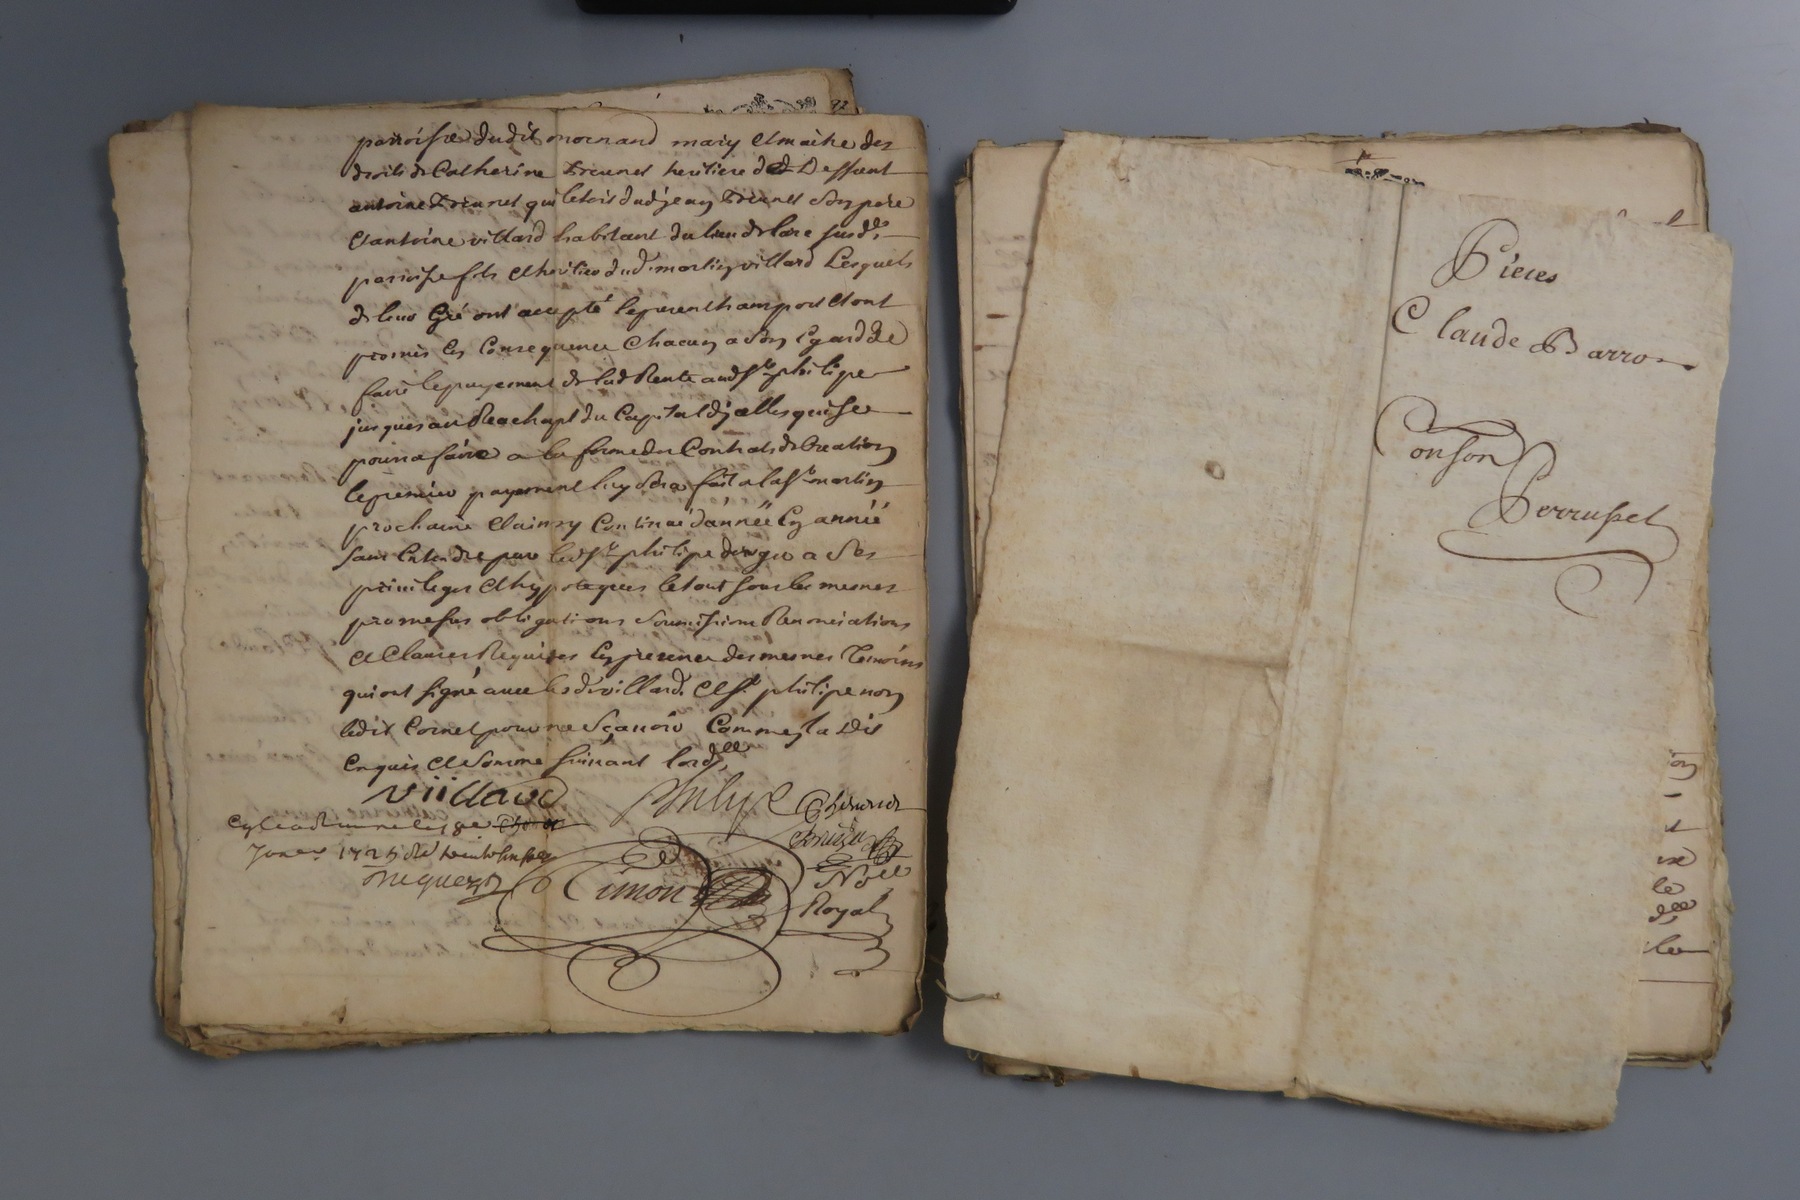 parroisse dudit mornand mary et maitre des
droits de Catherine heritiere deffunt
antoine qui letoit dud jean son pere
et antoine villard habitant du lieu de lare susd.
parroisse fils et heritier dud. martin villard Lesquels
de leur gré ont accepté le present transport et ont
promis en Consequence chacun a son Egard de
faire le payement de lad Rente aud sr philipe
jusques au Reachapt du Capital djcelles qui se
pourra faire a la forme des Contrats de Creation
le premier payement luy sera fait a la st martin
prochaine et ainsy Continué d'année En année
sans Entendre par led sr philipe deroger a ses
privileges et hypoteques le tout sous les mesmes
promesses obligations soumissions Renonciations
et Clauses Requises En presence des mesmes Temoins
qui ont signé avec les d. villard et sr philipe non
ledit Cornet pour ne sçavoir Comme jl a Dit
Enquis et somme suivant lord.
villard philipe
Janer 1725
Simon
Noel
Royal
92
Pieces
Claude Barro
Conson
Perrussel